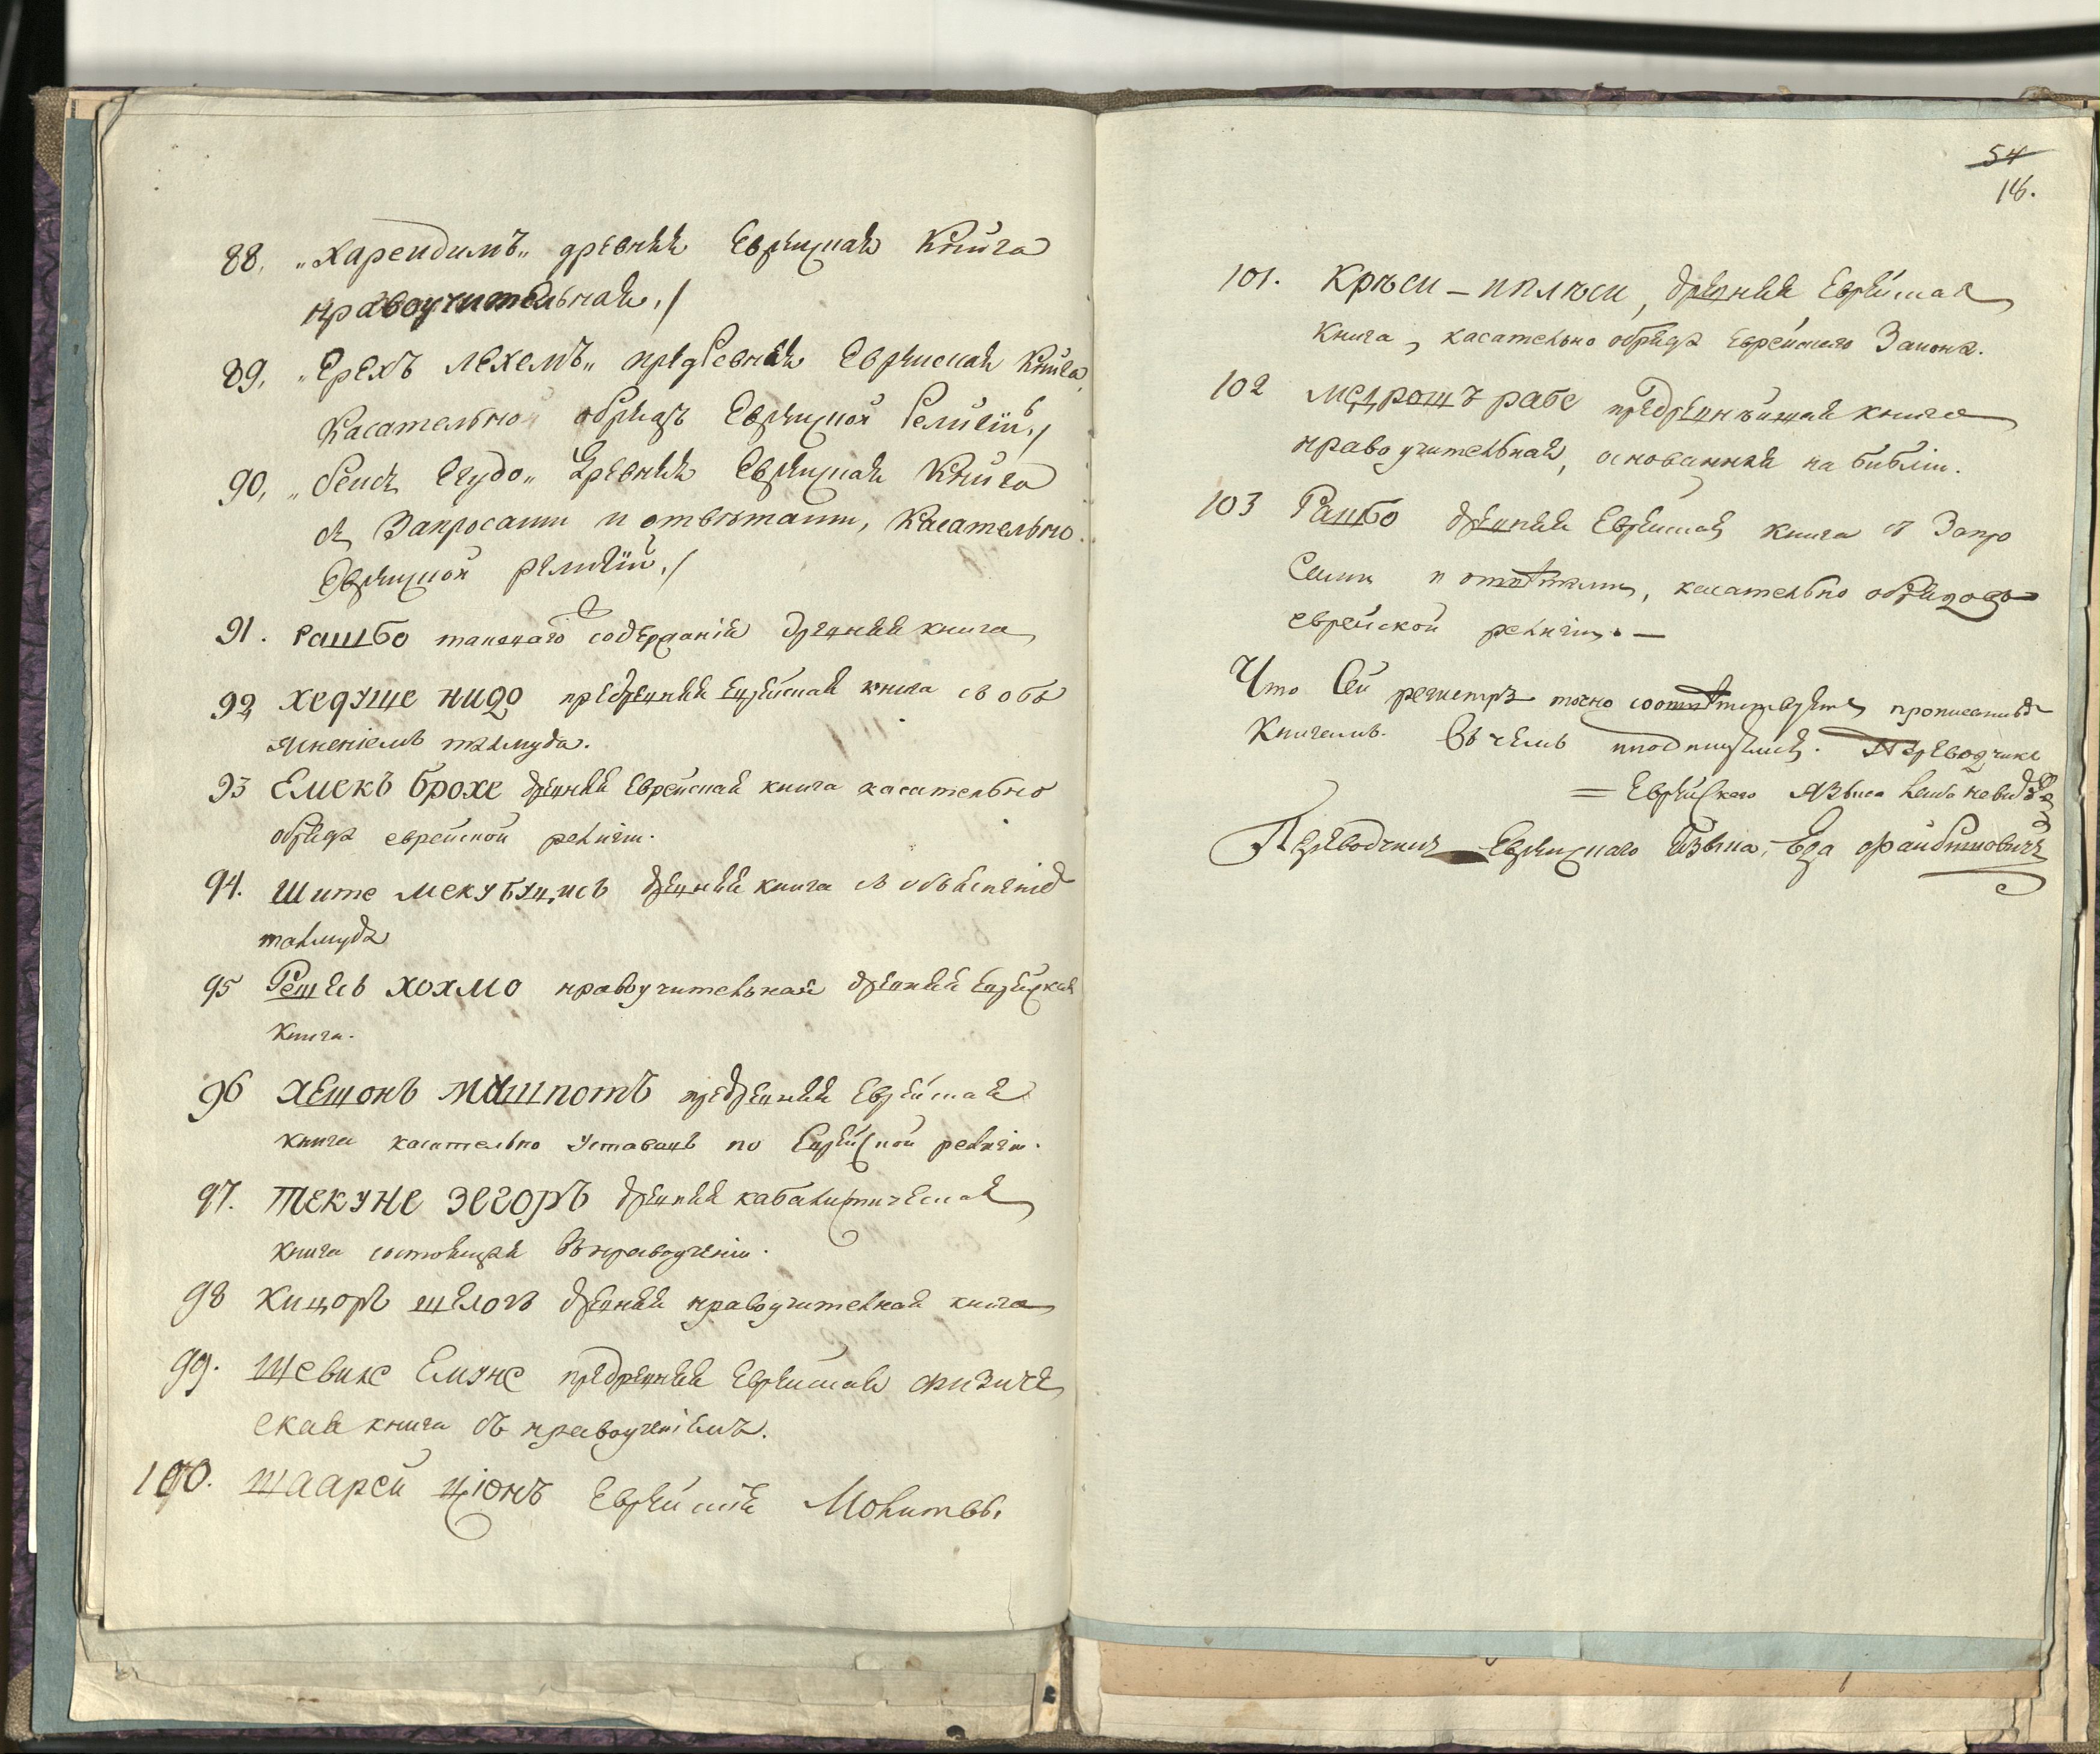 88. „Харейдимъ„ древняя Еврейская Книга
нравоучительная./
89. „Ерехъ лехемъ„ предревняя Еврейская Книга,
Касательно обрядъ Еврейской Религіи./
90. „бейсъ Егудо„ Древняя Еврейская Книга
съ Запросами и отвѣтами, Касательно
Еврейской религіи./
91. рашбо таковаго содержанія древняя книга
92 хедуше нидо предревняя Еврейская книга съ объ
ясненіемъ талмуда.
93 Емекъ брохе древняя Еврейская книга касательно
обряда еврейской религіи.
94. шите мекубецисъ древняя книга съ объясненіе
талмуда
95 Решисъ хохмо нравоучительная древняя Еврейская
книга.
96 хешонъ машпотъ предревняя Еврейская
книга касательно уставовъ по Еврейской религіи.
97. Текуне зегоръ древняя кабалистическая
книга состоящая въ нравоученіи.
98 кицоръ шелогъ древняя нравоучителная книга
99. Шевиле Емуне предревняя Еврейская физиче
ская книга съ нравоученіемъ.
100. шаарей ціонъ Еврейскія Молитвы.
54
16.
101. Крѣси-плѣси, древняя Еврейская
книга, касательно обряда Еврейскаго Закона.
102 медрошъ рабе предревнѣйшая книга
нравоучительная, основанная на библіи.
103 Рашбо древняя Еврейская книга съ Запро
сами и отвѣтами, касательно обрядовъ
еврейской религіи. —
Что Сей регистръ точно соотвѣтствуетъ прописаннымъ
Книгамъ. Въ чемъ и подписуемся. Переводчикъ
= Еврейскаго Языка
Переводчикъ Еврейскаго Языка, Файбишовичъ